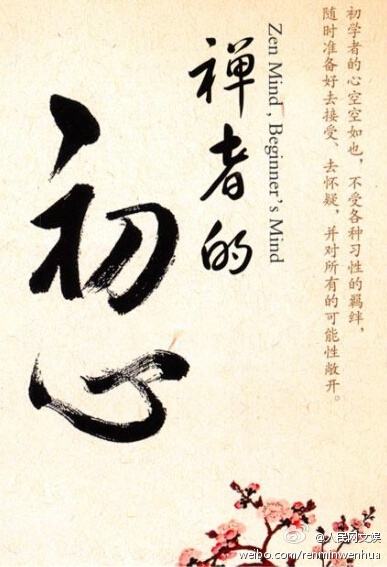 初学者的心空空如也，不受各种习性的羁绊，
随时准备好去接受、去怀疑，并对所有的可能性敞开。
Zen Mind, Beginner's Mind
禅者的
初心
@人民网文娱
weibo.com/renminwenhua